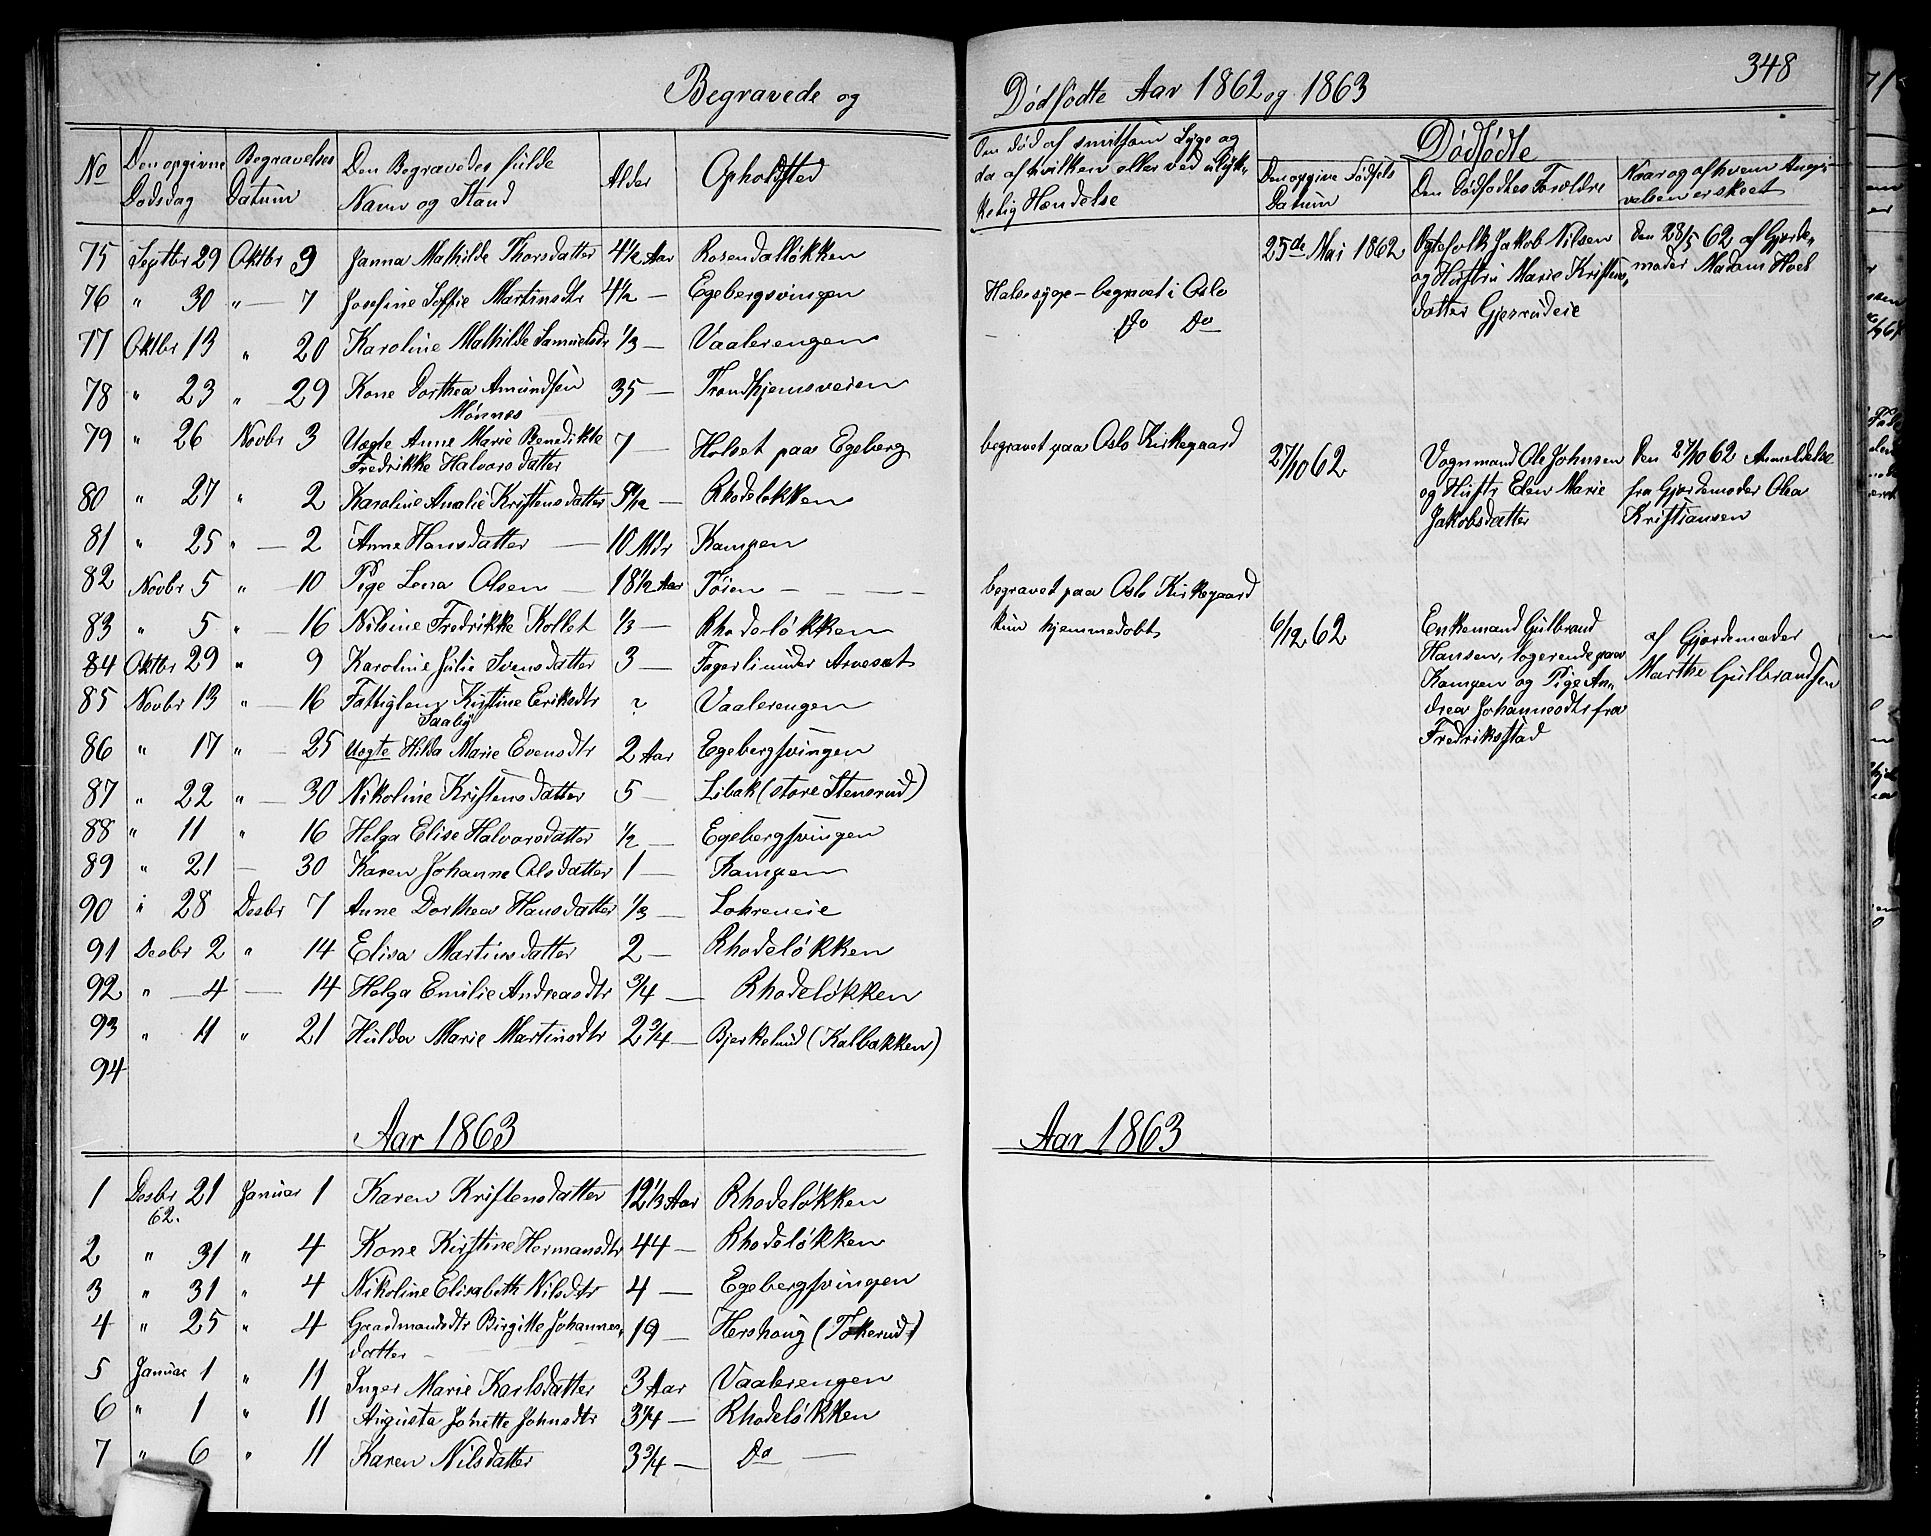 348
Begravede og Dødfødte Aar 1862 og 1863
No | Den opgivne Dødsdag | Begravelses Datum | Den Begravedes fulde Navn og Stand | Alder | Opholdsted
75 Septbr 29 Oktbr 9 Janna Mathilde Thorsdatter 4½ Aar Rosendalløkken
76 " 30 " — 7 Josefine Soffie Martinsdtr 4½ — Egebergsvingen
77 Oktbr 13 " 20 Karoline Mathilde Samuelsdr ⅓ — Vaalerengen
78 " 23 " — 29 Kone Dorthea Amundsen 35 — Trondhjemsveien
Mønnes
79 " 26 Novbr 3 Uægte Anne Marie Benedikte 7 — Holset paa Egeberg
Fredrikke Halvorsdatter
80 " 27 " 2 Karoline Amalie Kristensdatter 5/12 — Rhodeløkken
81 " 25 " — 2 Anne Hansdatter — 10 Mdr Kampen
82 Novbr 5 " — 10 Pige Lena Olsen — 18½ Aar Tøien — — — —
83 " 5 " — 16 Nilsine Fredrikke Kollet ⅓ — Rhodeløkken
84 Oktbr 29 " 9 Karoline Julie Svensdatter 3 — Fagerli under Arvesæt
85 Novbr 13 " — 16 Fattiglem Kirstine Eriksdtr ? Vaalerengen
Saaby
86 " 17 " — 25 Uægte Hilda Marie Evensdtr 2 Aar Egebergsvingen
87 " 22 " — 30 Nikoline Kristensdatter 5 — Libak (store Stensrud)
88 " 11 " 16 Helga Elise Halvorsdatter ½ — Egebergsvingen
89 " 21 — 30 Karen Johanne Olsdatter 1 — Kampen
90 " 28 Desbr 7 Anne Dorthea Hansdatter ⅓ — Lohreneie
91 Desbr 2 " 14 Elisa Martinsdatter 2 — Rhodeløkken
92 " — 4 — 14 Helga Emilie Andreasdtr ¾ — Rhodeløkken
93 " 11 " 21 Hulda Marie Martinsdtr 2¾ — Bjerkelund (Kalbakken)
94
Aar 1863
1 Desbr 21 Januar 1 Karen Kristensdatter 12⅓ Aar Rhodeløkken
62.
2 " 31 " 4 Kone Kirstine Hermansdtr 44 — Rhodeløkken
3 " 31 " 4 Nikoline Elisabeth Nilsdtr 4 — Egebergsvingen
4 " 25 " 4 Gaardmandsdtr Birgitte Johannes- 19 — Hershoug (Tokerud)
datter
5 Januar 1 " 11 Inger Marie Karlsdatter 3 Aar Vaalerengen
6 " 1 " 11 Augusta Jonette Johnsdtr 3¼ — Rhodeløkken
7 " 6 " 11 Karen Nilsdatter 3¾ — Do —
Om død af smitsom Syge og
da af hvilken eller ved ulyk-
kelig Hændelse
Halssyge – begravet i Oslo
— Do Do
begravet paa Oslo Kirkegaard
begravet paa Oslo Kirkegaard
kun hjemmedøbt
Dødfødte
Den opgivne Fødsels
Datum
Den Dødfødtes Forældre
Naar og af hvem Angi-
velsen er skeet
25de Mai 1862
Ægtefolk Jakob Nilsen
og Hustru Marie Kristens-
datter Gjerrudeie
Den 28/5 62 af Gjorde-
moder Madam Hoel
27/10 62
Vognmand Ole Johnsen
og Hustr Elen Marie
Jakobsdatter
Den 27/10 62 Anmeldelse
fra Gjordemoder Olea
Kristiansen
6/12 62
Enkemand Gulbrand
Hansen, logerende paa
Kampen og Pige An-
drea Johannesdtr fra
Fredriksstad
af Gjordemoder
Marthe Gulbrandsen
Aar 1863